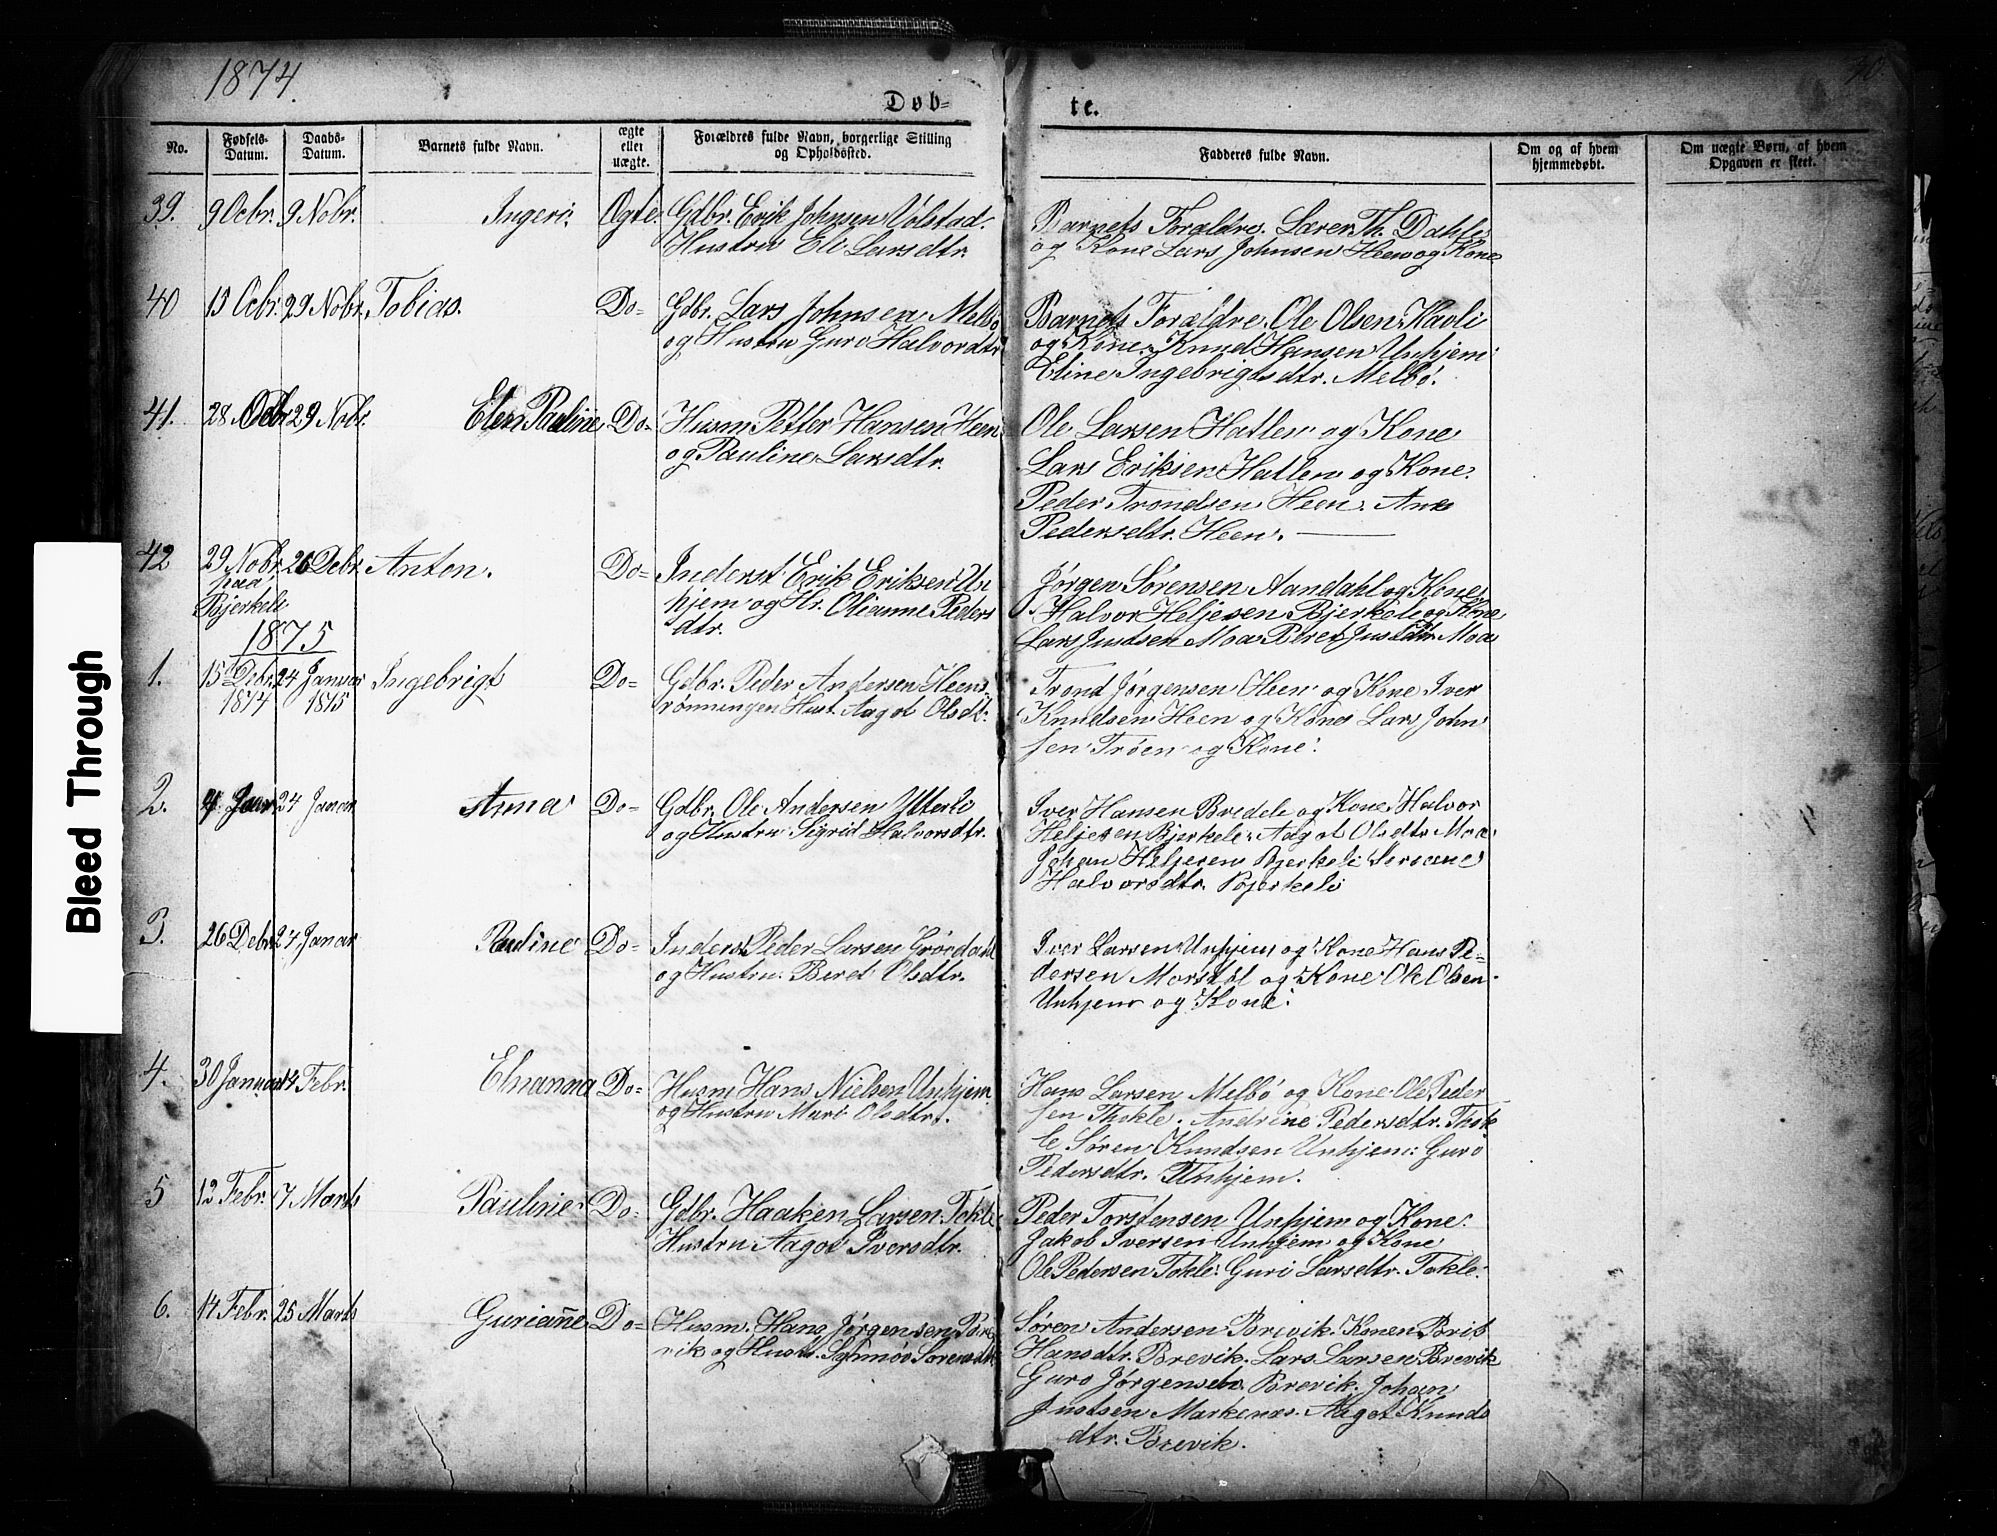 1874.
30.
Døb-
te.
No.
Fødsels-Datum.
Daabs-Datum.
Barnets fulde Navn.
ægte eller uægte.
Forældres fulde Navn, borgerlige Stilling og Opholdssted.
Fadderes fulde Navn.
Om og af hvem hjemmedøbt.
Om uægte Børn, af hvem Opgaven er skeet.
39. 9 Ocbr. 9 Nobr. Ingeri. Ogte. Gdbr. Erik Johnsen Volstad.
Hustru Eli Larsdtr.
Barnets Forældre. Lærer Th. Dahle
og Kone Lars Johnsen Heen og Kone
40 13 Ocbr. 29 Nobr. Tobias. Do- Gdbr. Lars Johnsen Melbø
og Hustru Guro Halvordtr
Barnets Forældre. Ole Olsen Havli
og Kone. Knud Hansen Unhjem
Eline Ingebrigtsdtr. Melbø.
41. 28 Ocbr 29 Nobr. Elen Pauline Do- Husm. Petter Hansen Heen
og Pauline Larsdtr.
Ole Larsen Hatlen og Kone
Lars Eriksen Hatlen og Kone.
Peder Trondsen Heen. Ane
Pedersdtr. Heen.
42 29 Nobr. 26 Debr. Anton. Do- Inderst Erik Eriksen Un
paa
Bjerkeli
hjem og Hr. Olianne Peders
dtr.
Jørgen Sørensen Aandahl og Kone.
Halvor Heljesen Bjerkeli og Kone
Lars Justsen Moa Beret Justdtr. Moa
1875
1. 15 Debr. 24 Januar Ingebrigt Do- Gdbr. Peder Andersen Heens
1874 1875
rønningen Hust. Aagot Olsdt.
Trond Jørgensen Heen og Kone Iver
Knudsen Heen og Kone Lars John
sen Trøen og Kone.
2. 4 Jaar 24 Janar Anna Do- Gdbr. Ole Andersen Ytterli
og Hustru Sigrid Halvorsdtr.
Iver Hansen Bredeli og Kone Halvor
Heljesen Bjerkeli. Aagot Olsdtr Moa
Johan Heljesen Bjerkeli
Halvorsdtr. Bjerkeli
3. 26 Debr. 24 Janar Pauline Do- Inderst Peder Larsen Grøvdahl
og Hustru Beret Olsdtr.
Iver Larsen Unhjem og Kone Hans Pe-
dersen Morstøl og Kone Ole Olsen
Unhjem og Kone.
4. 30 Januar 14 Febr. Elnanna Do- Husm Hans Nielsen Unhjem
og Hustru Mari Olsdtr.
Hans Larsen Melbø og Kone Ole Peder
sen Thokle. Andrine Pedersdtr. Thok
le Søren Knudsen Unhjem: Guro
Pedersdtr. Unhjem.
5 12 Febr. 7 Marts Pauline Do- Gdbr. Haaken Larsen Tokle
Hustru Aagot Iversdtr.
Peder Torstensen Unhjem og Kone.
Jakob Iversen Unhjem og Kone
Ole Pedersen Tokle. Guri Larsdtr. Tokle.
6. 14 Febr. 25 Marts Gurianne Do- Husm. Hans Jørgensen Bre
vik og Hustr. Synnøv Sørensdtr
Søren Andersen Brevik. Konen Brit
Hansdtr. Brevik. Lars Larsen Brevik
Guro Jørgensdtr. Brevik. Johan
Justsen Markenæs. Aagot Knuds
dtr. Brevik.
Bleed Through